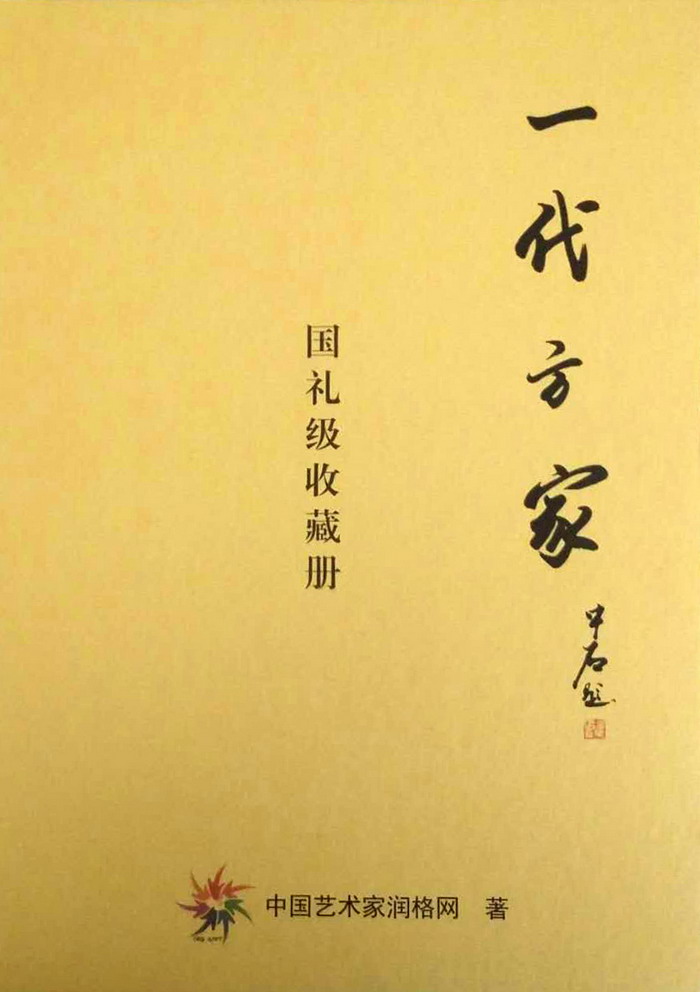 一代方家
中石题
国礼级收藏册
中国艺术家润格网 著